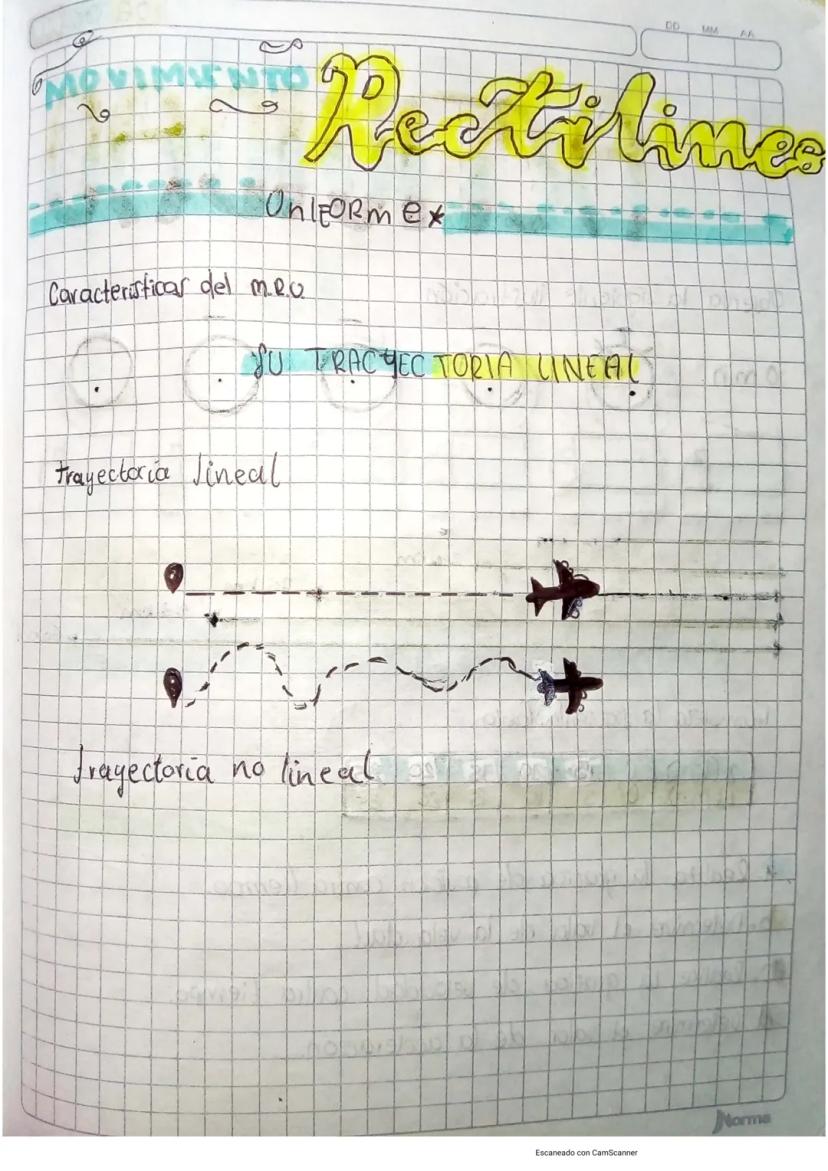 DD MM AA
MOVIMIENTO
Rectilineo
UnIFORme*
Características del m.R.U
SU TRACYECTORIA LINEAL
Trayectoria lineal
Trayectoria no lineal
Norma
Escaneado con CamScanner